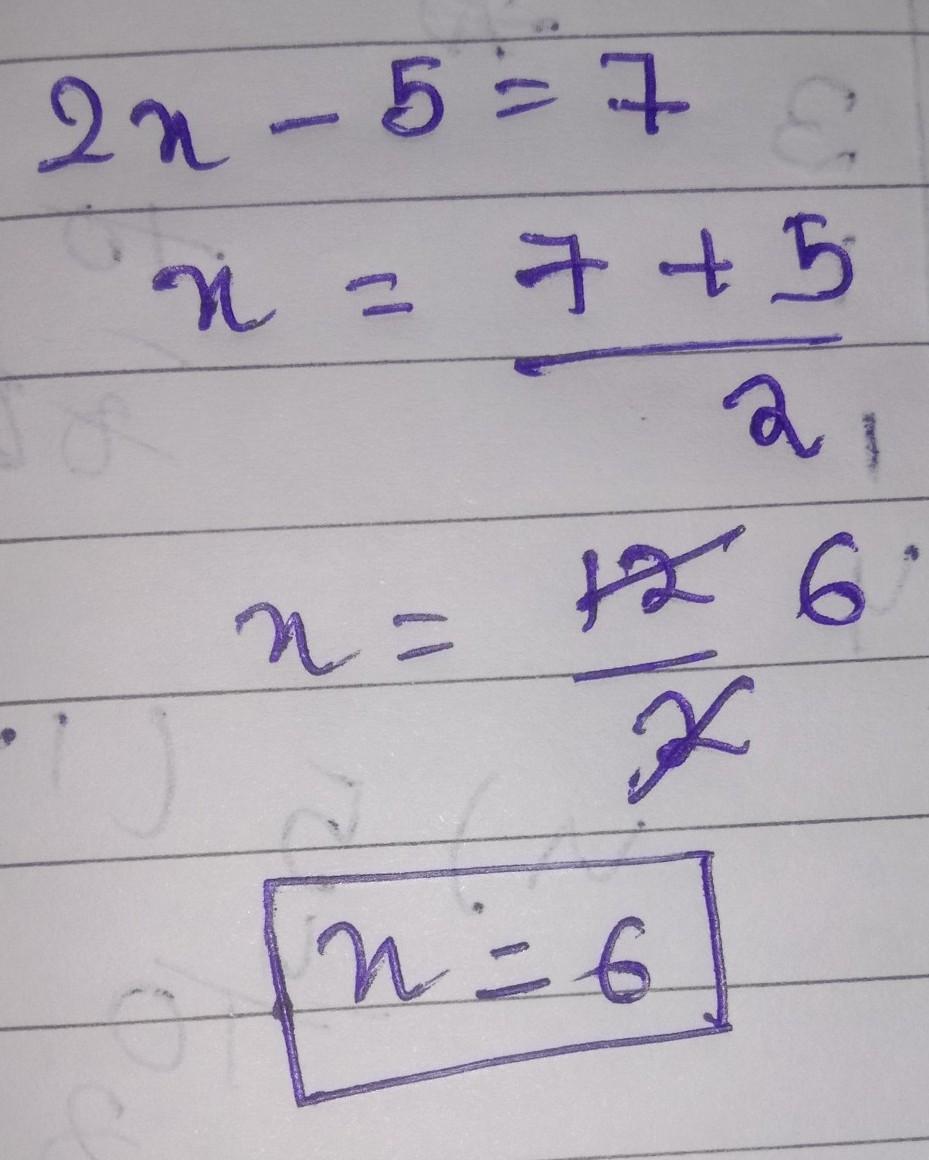 2x - 5 = 7
x = 7 + 5
2
x = 12 6
2
x = 6